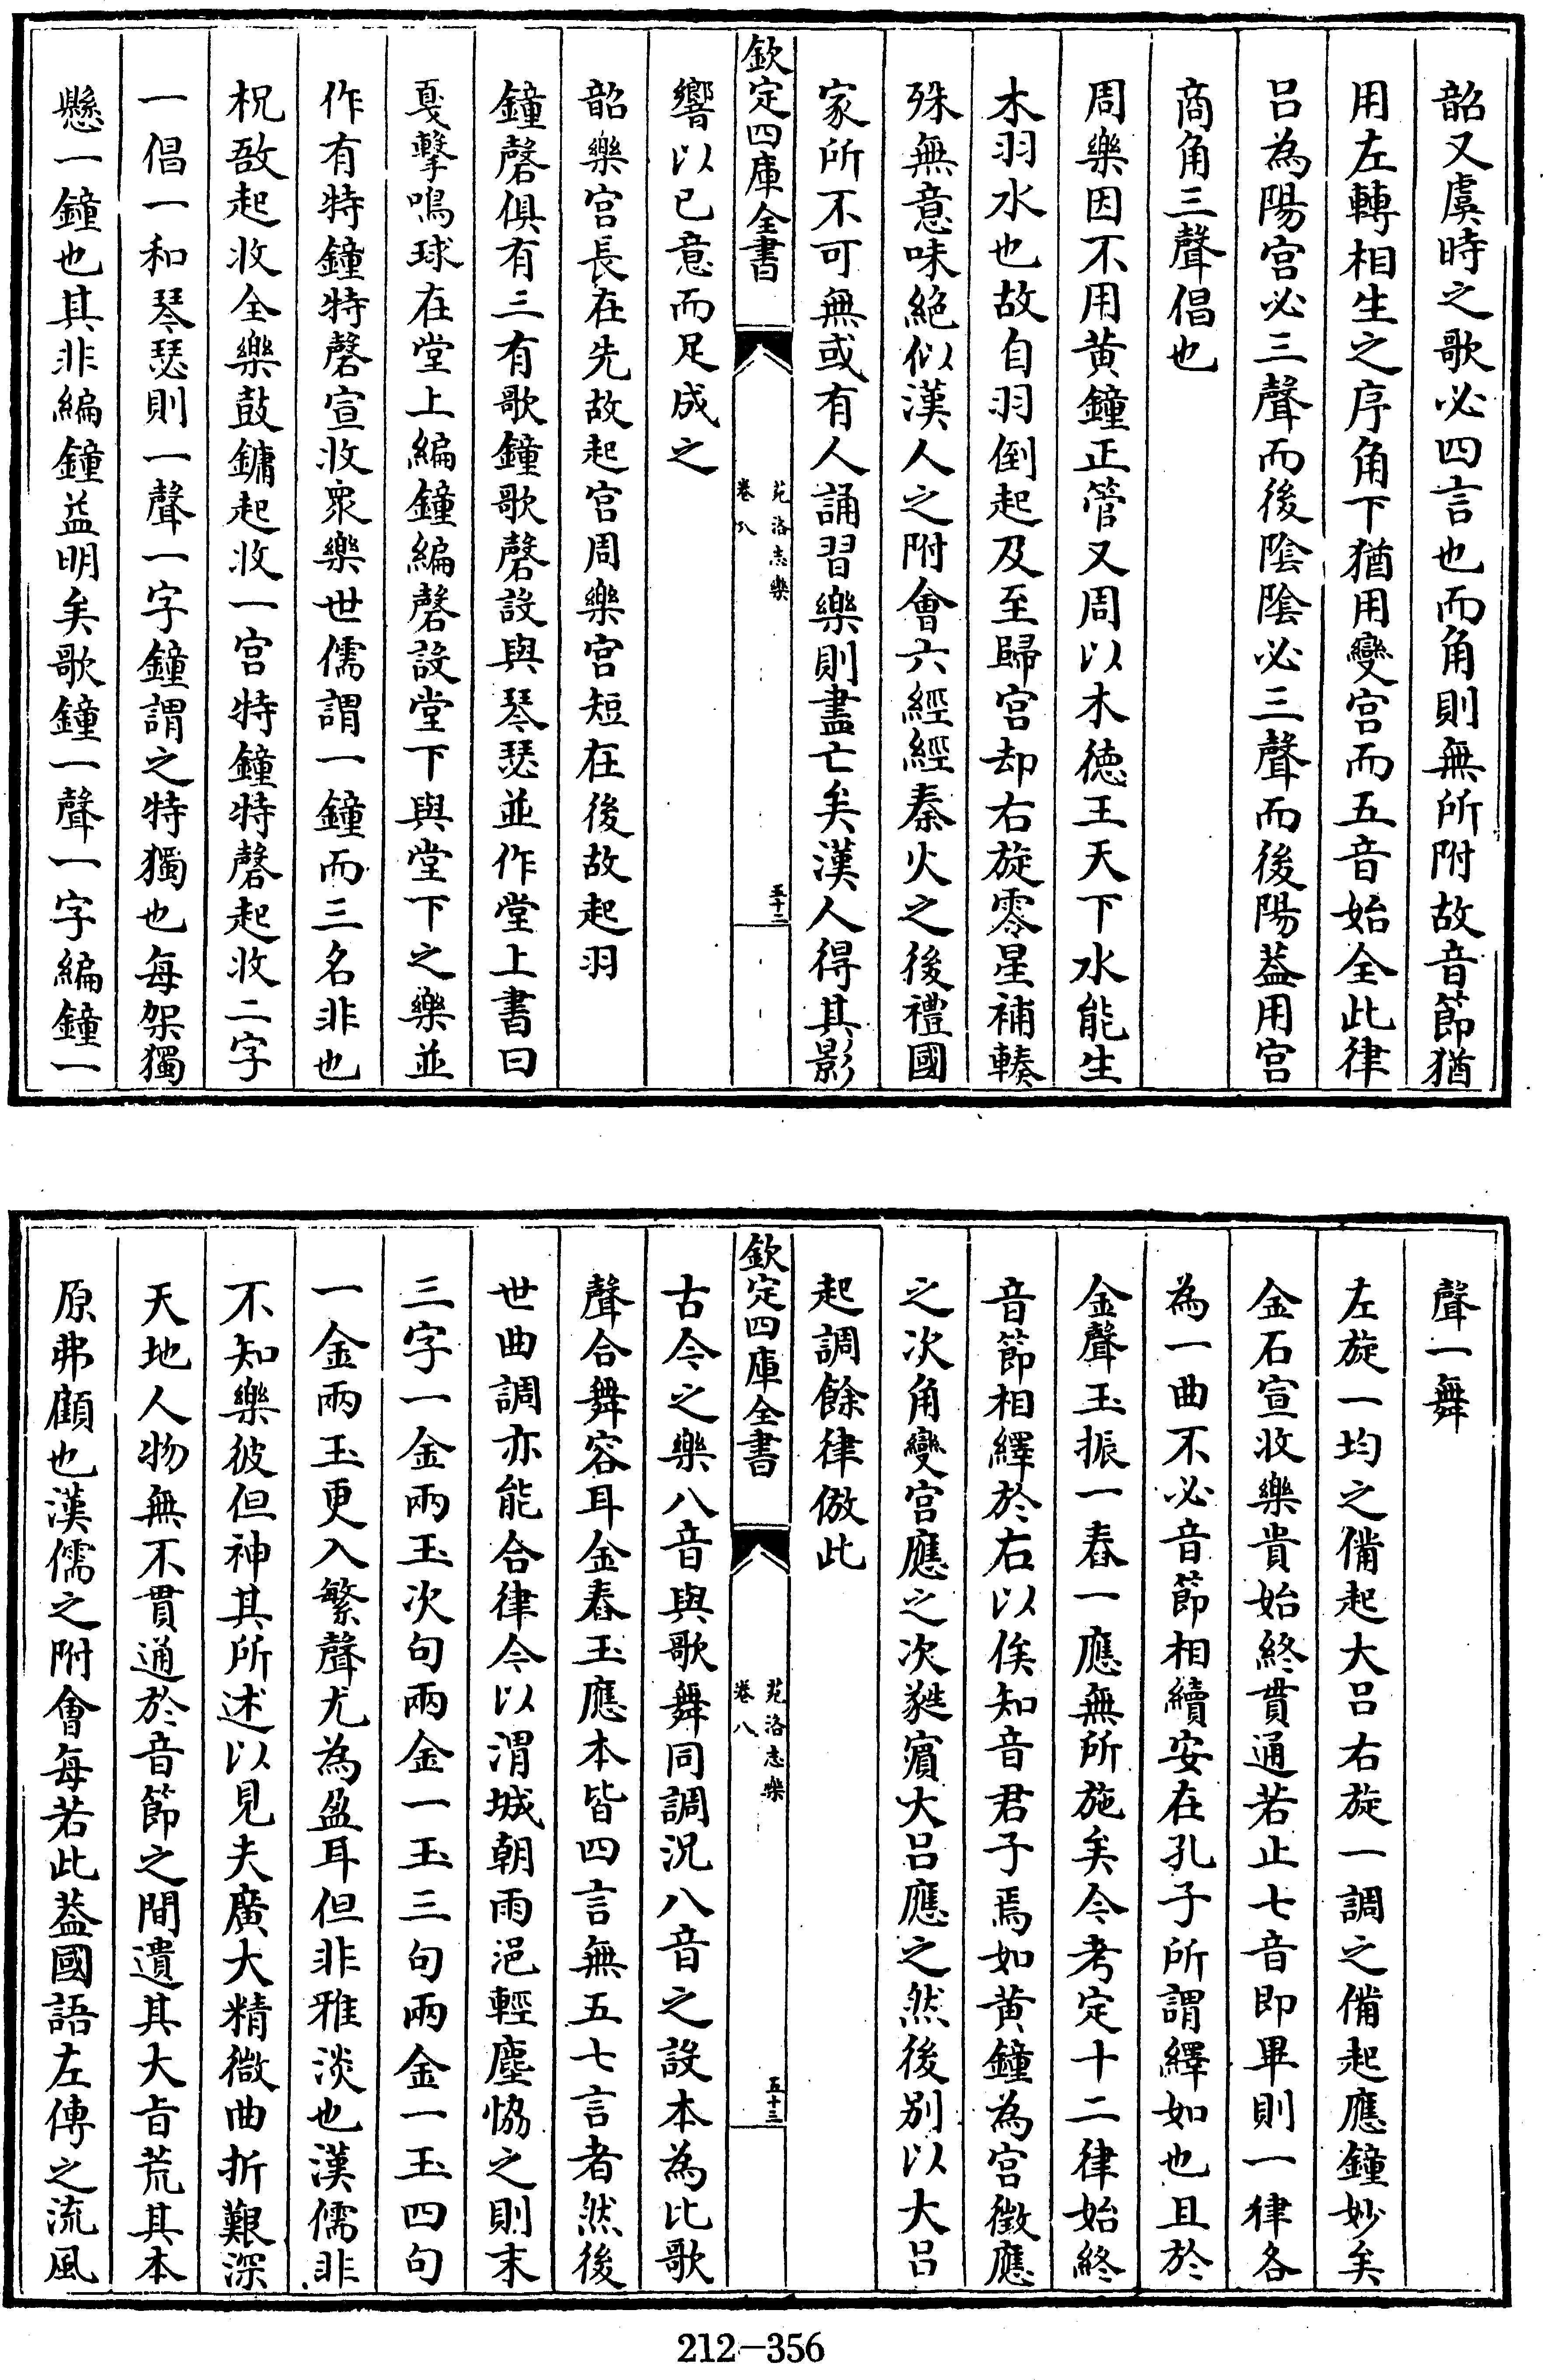 韶又虞時之歌必四言也而角則無所附故音節猶
用左轉相生之序角下猶用變宫而五音始全此律
吕為陽宫必三聲而後隂隂必三聲而後陽葢用宫
商角三聲倡也
周樂因不用黄鐘正管又周以木徳王天下水能生
木羽水也故自羽倒起及至歸宫却右旋零星補輳
殊無意味絶似漢人之附會六經經秦火之後禮國
家所不可無或有人誦習樂則盡亡矣漢人得其影
欽定四庫全書
苑洛志樂
卷八
五十二
響以已意而足成之
韶樂宫長在先故起宫周樂宫短在後故起羽
鐘磬俱有三有歌鐘歌磬設與琴瑟並作堂上書曰
戛擊鳴球在堂上編鐘編磬設堂下與堂下之樂並
作有特鐘特磬宣收衆樂世儒謂一鐘而三名非也
柷敔起收全樂鼓鏞起收一宫特鐘特磬起收二字
一倡一和琴瑟則一聲一字鐘謂之特獨也每架獨
懸一鐘也其非編鐘益明矣歌鐘一聲一字編鐘一
聲一舞
左旋一均之備起大吕右旋一調之備起應鐘妙矣
金石宣收樂貴始終貫通若止七音即畢則一律各
為一曲不必音節相續安在孔子所謂繹如也且於
金聲玉振一舂一應無所施矣今考定十二律始終
音節相繹於右以俟知音君子焉如黄鐘為宫徵應
之次角變宫應之次蕤賓大吕應之然後别以大吕
起調餘律倣此
欽定四庫全書
苑洛志樂
卷八
五十三
古今之樂八音與歌舞同調況八音之設本為比歌
聲合舞容耳金舂玉應本皆四言無五七言者然後
世曲調亦能合律今以渭城朝雨浥輕塵恊之則末
三字一金兩玉次句兩金一玉三句兩金一玉四句
一金兩玉更入繁聲尤為盈耳但非雅淡也漢儒非
不知樂彼但神其所述以見夫廣大精微曲折艱深
天地人物無不貫通於音節之間遺其大㫖荒其本
原弗顧也漢儒之附會每若此葢國語左傳之流風
212-356